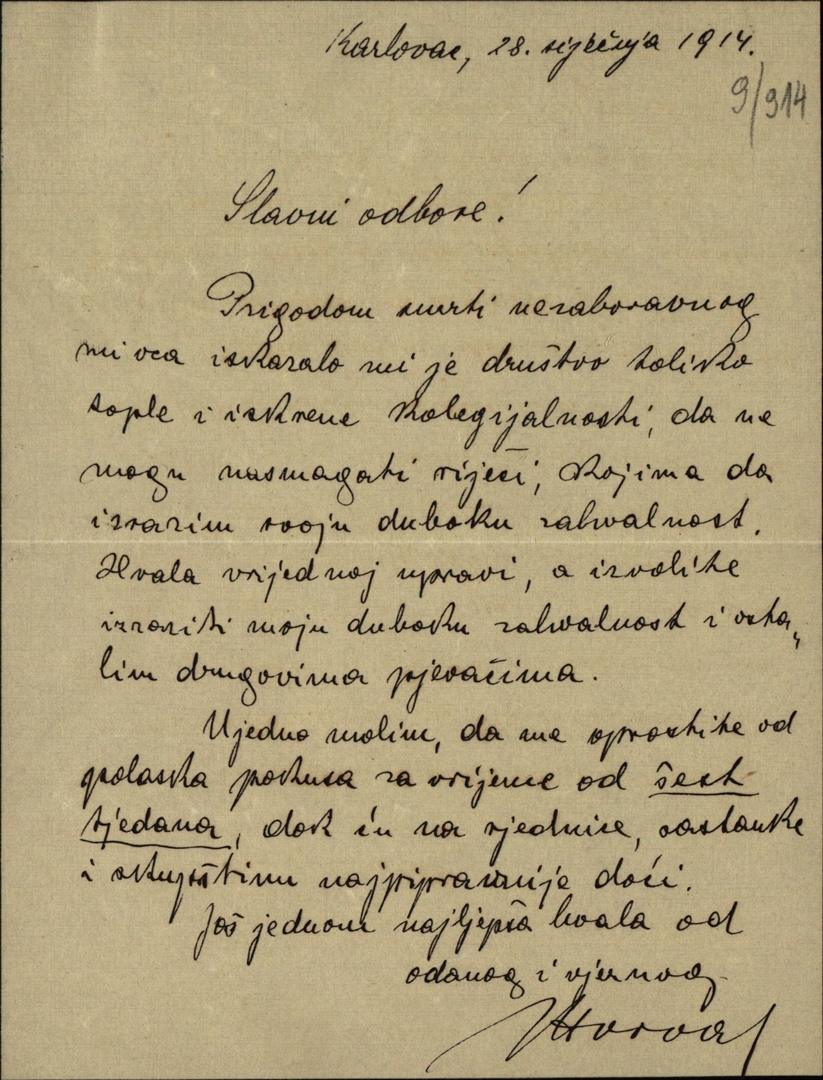 Karlovac, 28. siječnja 1914.
9/914
Slavni odbore!
Prigodom smrti nezaboravnog
mi oca iskazalo mi je društvo toliko
tople i iskrene kolegijalnosti, da ne
mogu nasmagati riječi, kojima da
izrazim svoju duboku zahvalnost.
Hvala vrijednoj upravi, a izvolite
izraziti moju duboku zahvalnost i osta„
lim drugovima pjevačima.
Ujedno molim, da me oprostite od
polaska pokusa za vrijeme od šest
tjedana, dok ću na sjednice, sastanke
i skupštinu najpripravnije doći.
Još jednom najljepša hvala od
odanog i vjernog
Horvat